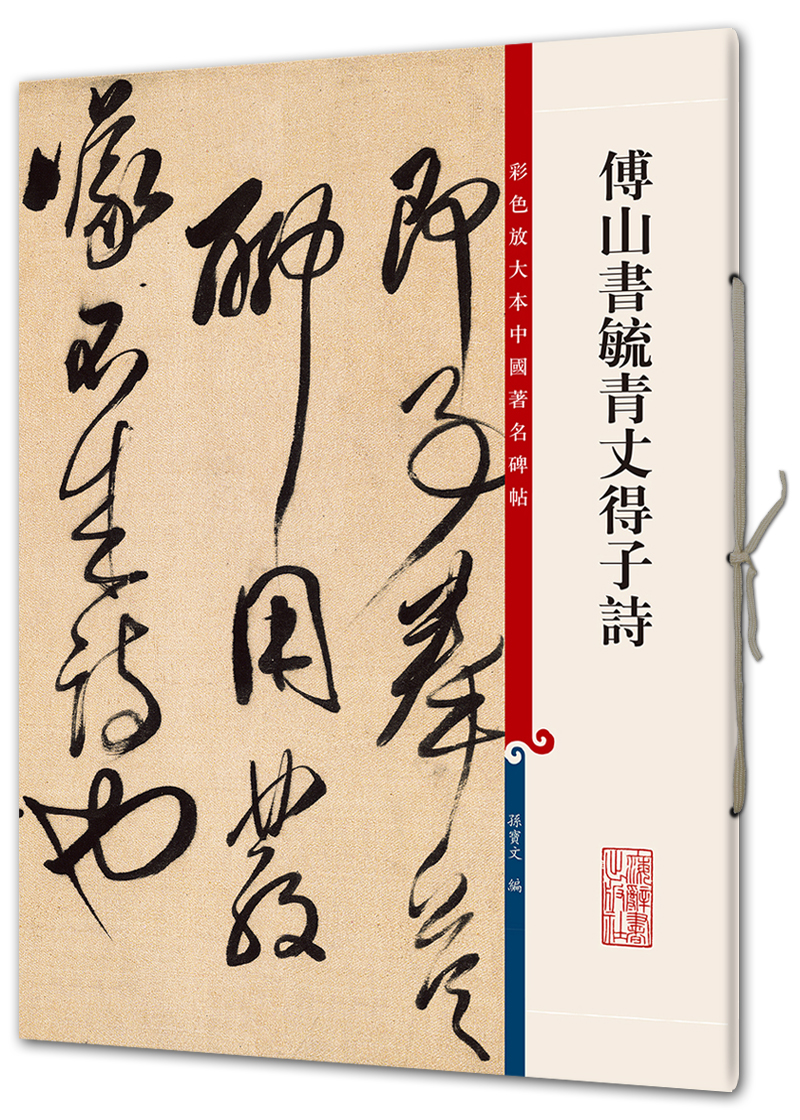 傅山書毓青丈得子詩
彩色放大本中國著名碑帖
孫寶文 編
上海辭書出版社
即子
聊用
詩也